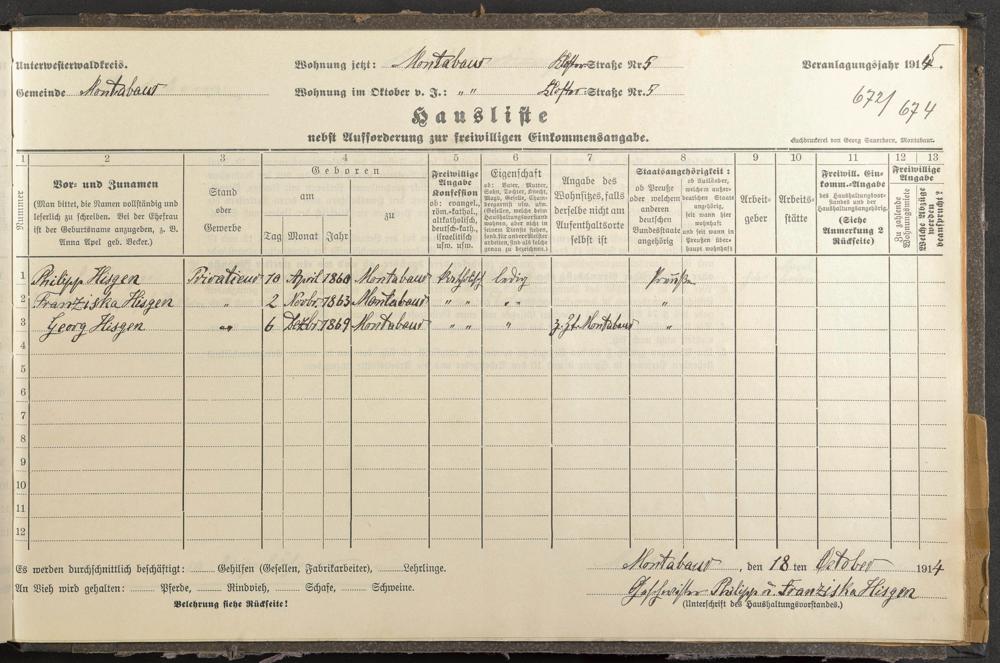 Unterwesterwaldkreis. Wohnung jetzt: Montabaur Kloster-Straße Nr. 5 Veranlagungsjahr 1915.
Gemeinde Montabaur Wohnung im Oktober v. J.: " " Kloster-Straße Nr. 5
672/674
Hausliste
nebst Aufforderung zur freiwilligen Einkommensangabe.
Buchdruckerei von Georg Sauerborn, Montabaur.
1 2 3 4 5 6 7 8 9 10 11 12 13
Nummer
Vor- und Zunamen
(Man bittet, die Namen vollständig und
leserlich zu schreiben. Bei der Ehefrau
ist der Geburtsname anzugeben, z. B.
Anna Apel geb. Becker.)
Stand
oder
Gewerbe
Geboren
am
zu
Tag Monat Jahr
Freiwillige
Angabe
Konfession
ob: evangel.,
röm.-kathol.,
altkatholisch,
deutsch-kath.,
israelitisch
usw. usw.
Eigenschaft
ob: Vater, Mutter,
Sohn, Tochter, Knecht,
Magd, Geselle, Cham-
bregarnist usw. usw.
(Gesellen, welche beim
Haushaltungsvorstand
wohnen, aber nicht in
seinen Diensten arbeiten,
sind für andere Meister
arbeiten, sind als solche
genau zu bezeichnen.)
Angabe des
Wohnsitzes, falls
derselbe nicht am
Aufenthaltsorte
selbst ist
Staatsangehörigkeit:
ob Preuße
oder welchem
anderen
deutschen
Bundesstaate
angehörig
ob Ausländer,
welchem außer-
deutschen Staate
angehörig,
seit wann hier
wohnhaft
und seit wann in
Preußen über-
haupt wohnhaft
Arbeit-
geber
Arbeits-
stätte
Freiwill. Ein-
komm.-Angabe
des Haushaltungsvor-
standes und der
Haushaltungsangehörig.
(Siehe
Anmerkung 2
Rückseite)
Freiwillige
Angabe
Zu zahlende
Wohnungsmiete
Welche Abzüge
werden
beansprucht?
1 Philipp Hisgen Privatieur 10 April 1860 Montabaur katholisch ledig Preuße
2 Franziska Hisgen " 2 Novbr. 1863 Montabaur " " " " "
3 Georg Hisgen " 6 Dezbr. 1869 Montabaur " " " z. Zt. Montabaur "
4
5
6
7
8
9
10
11
12
Es werden durchschnittlich beschäftigt: Gehilfen (Gesellen, Fabrikarbeiter), Lehrlinge.
Montabaur, den 18.ten October 1914
An Vieh wird gehalten: Pferde, Rindvieh, Schafe, Schweine.
Geschwister Philipp u. Franziska Hisgen
Belehrung siehe Rückseite!
(Unterschrift des Haushaltungsvorstandes.)